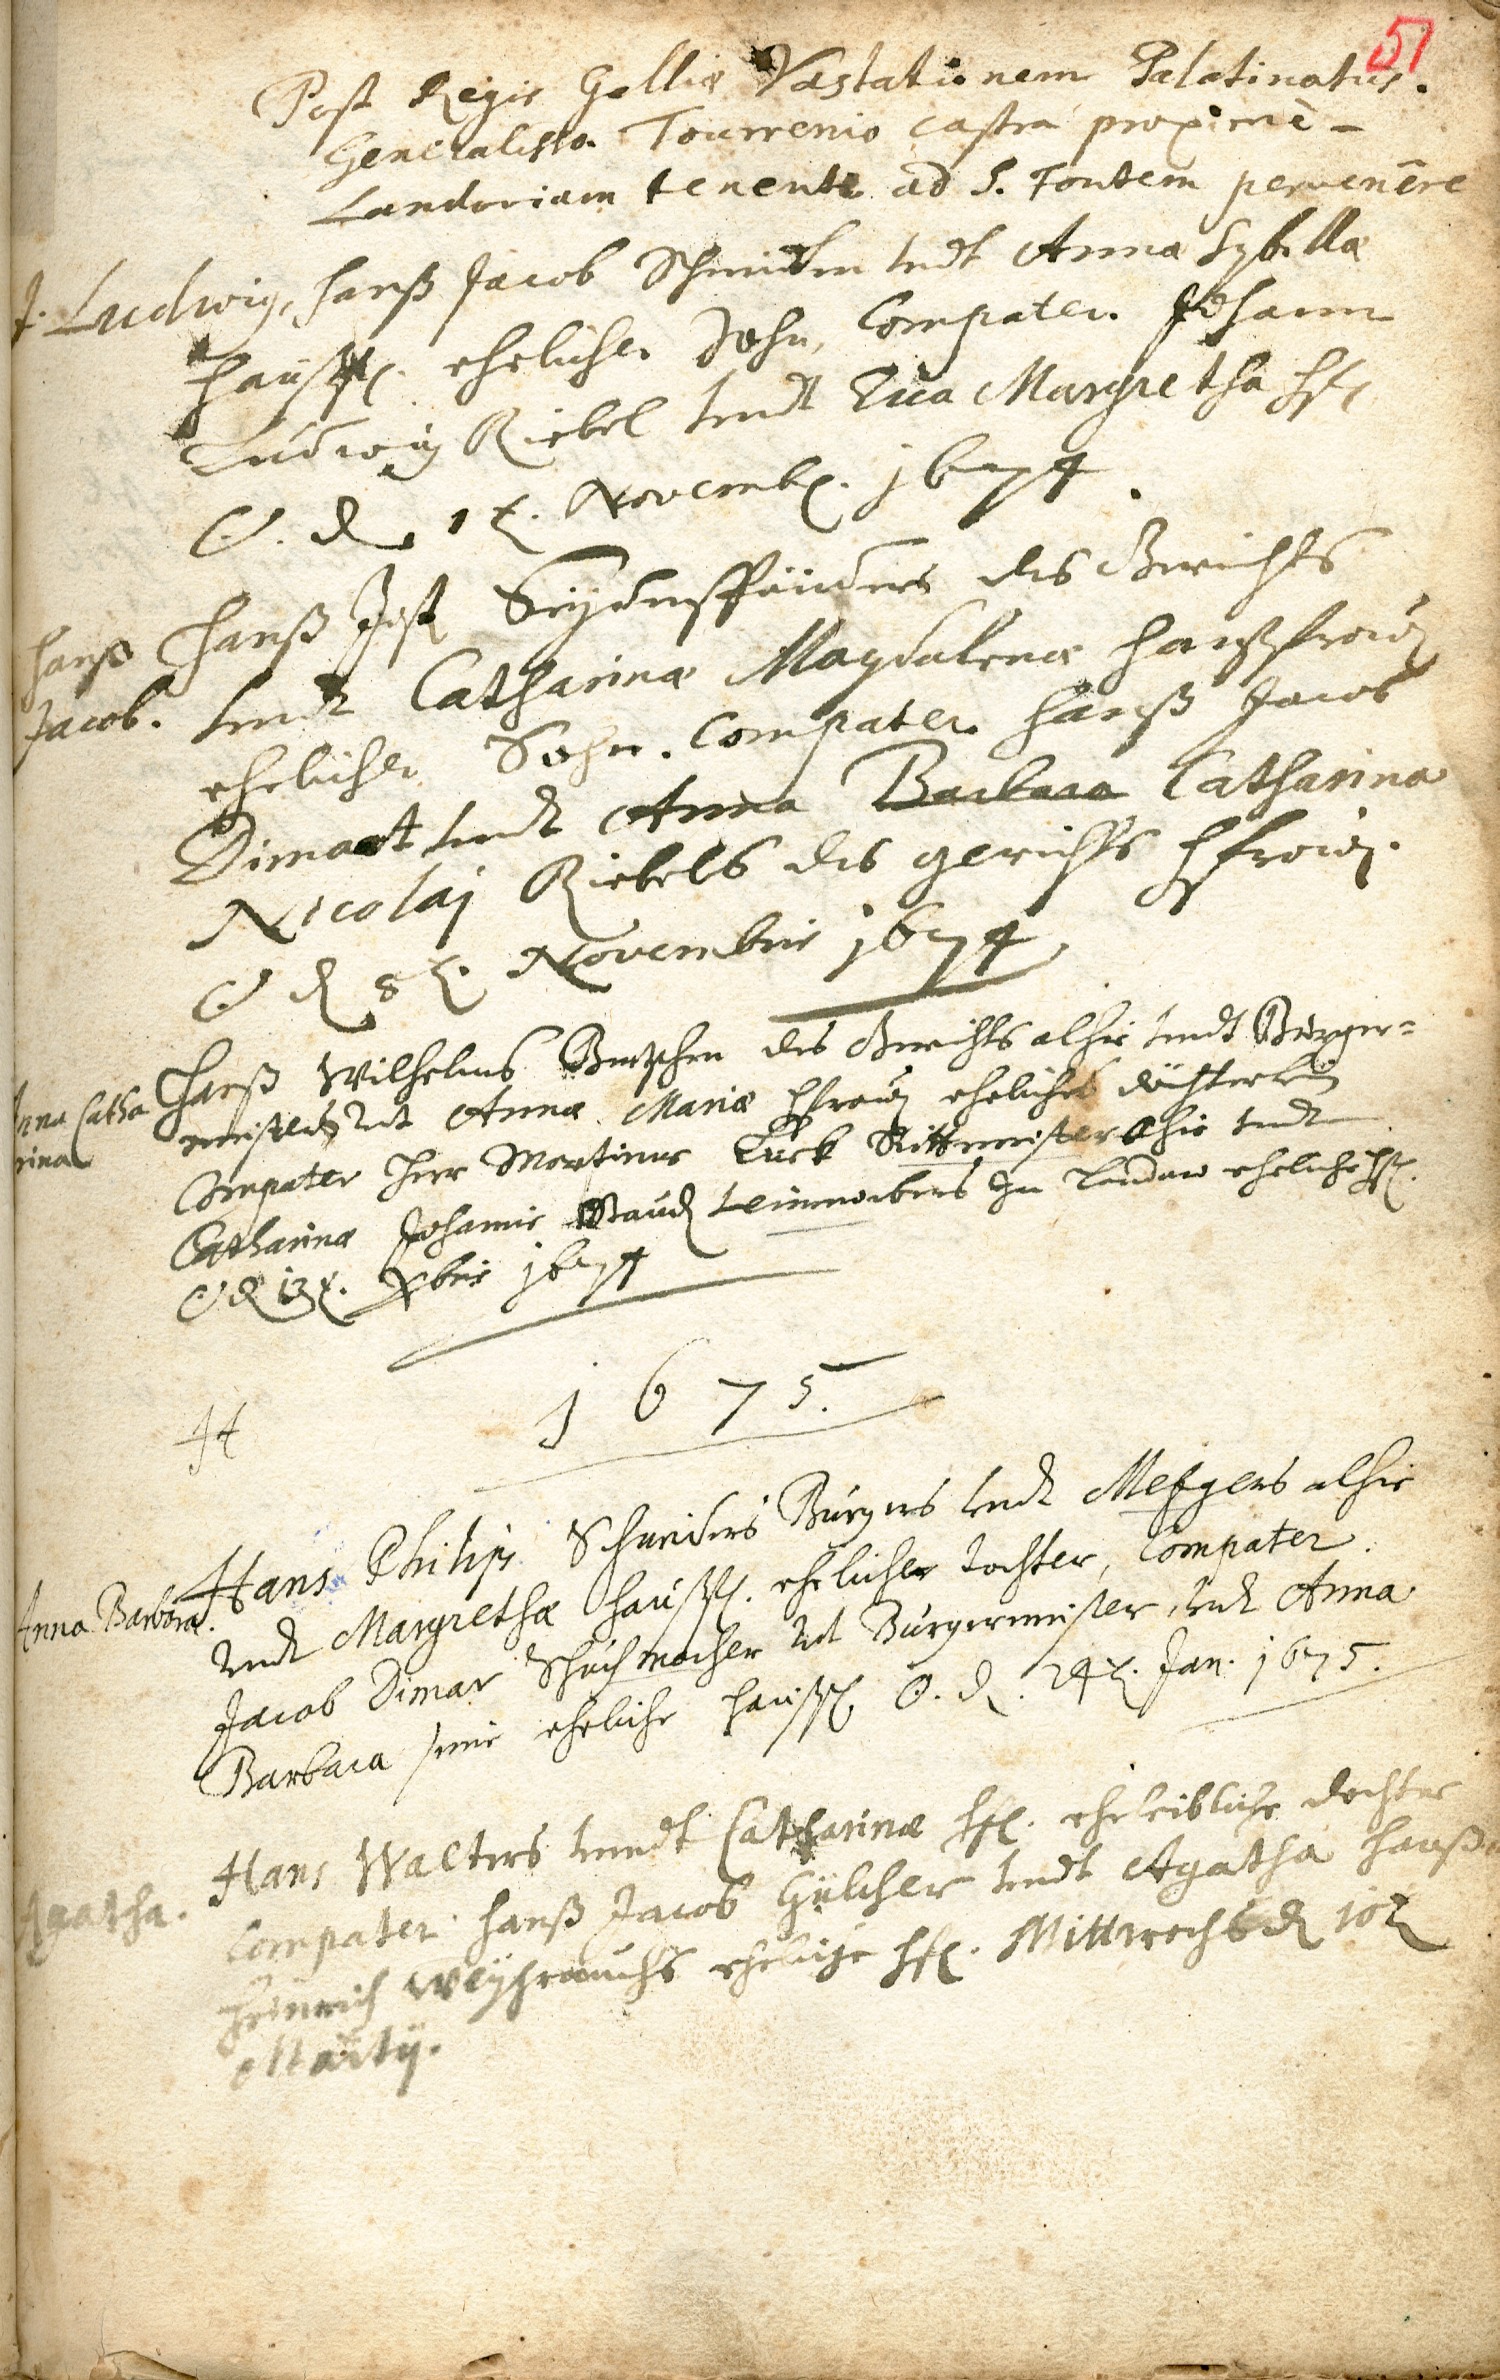 51
Post Regis Galliæ Vastationem Palatinatus.
Generalisso. Tourrenio castra proximè
Landaviam tenente ad S. Fontem pervenêre
J. Ludwig, Hanß Jacob Schmidten undt Anna Sybilla
haußfr. ehelicher Sohn, Compater. Johann
Ludwig Riebel undt Eva Margretha hfr
d. 1t. Novemb. 1674.
Hanß Hanß Jost des Gerichts
Jacob. undt Catharinæ Magdalenæ haußfraw
ehelicher Sohn. Compater Hanß Jacob
Dimart undt Anna Barbara Catharina
Nicolaj Riebels des gerichts hfraw.
d 8t. Novembris 1674
Anna Catha Hanß Wilhelms des Gerichts alhie undt Burger=
rina meisters undt Annæ Mariæ hfraw eheliches döchterlein
Compater Herr Martinus Luck Rittmeister alhie undt
Catharina Johannis Leinenwebers zu Landaw eheliche hfr.
d 13t. Xbris 1674
1675.
H
Hans Philips Schneiders Burgers undt Metzgers alhie
Anna Barbara. undt Margrethæ haußfr. ehelicher Tochter, Compater
Jacob Dimar Schuhmacher undt Burgermeister, undt Anna
Barbara seine eheliche haußfr. d. 24t. Jan. 1675.
Hans Walters undt Catharinæ hfr. eheleibliche dochter
Agatha. Compater Hanß Jacob Gülcher undt Agatha Hanß
Heinrich Weyhrauchs eheliche hfr. Mittwochs d 10t
Martij.